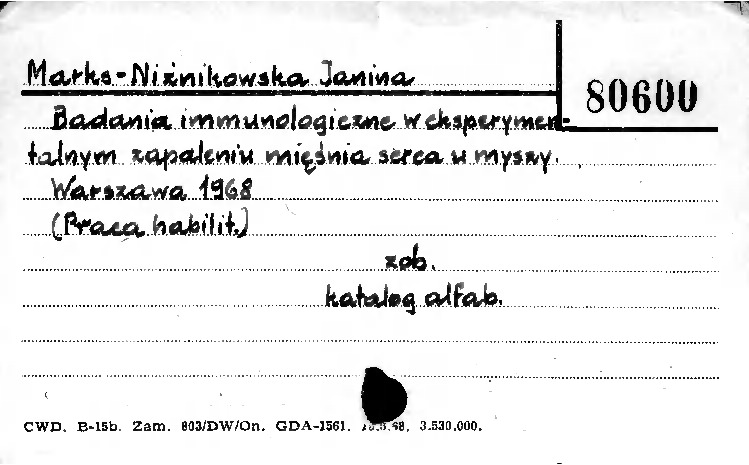 Marks-Niżnikowska Janina
80600
Badania immunologiczne w eksperymen-
talnym zapaleniu mięśnia serca u myszy.
Warszawa 1968
(Praca habilit.)
zob.
katalog alfab.
CWD. B-15b. Zam. 803/DW/On. GDA-1561. 3.530.000.